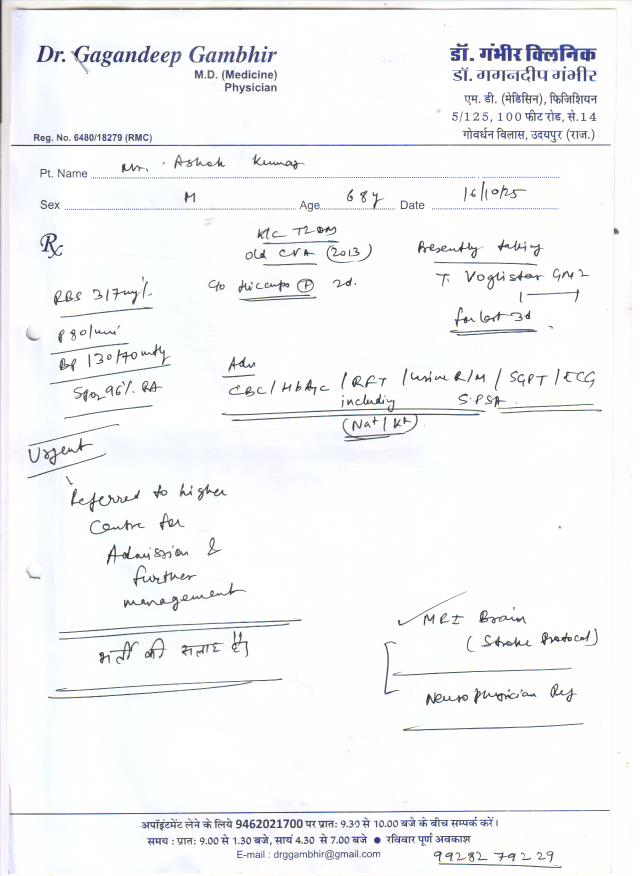 Dr. Gagandeep Gambhir
M.D. (Medicine)
Physician
Reg. No. 6480/18279 (RMC)
डॉ. गंभीर क्लिनिक
डॉ. गगनदीप गंभीर
एम. डी. (मेडिसिन), फिजिशियन
5/125, 100 फीट रोड, से.14
गोवर्धन विलास, उदयपुर (राज.)
Pt. Name Mr. Ashok Kumar
Sex M Age 68y Date 16/10/25
Rx
K/c T2DM
Old CVA (2013)
C/o Hiccups + 2d.
Presently taking
T. Voglistar GM2
1
for last 3d.
RBS 317mg%
P 80/min
BP 130/70mmHg
SpO2 96% RA
Adv
CBC / HbA1c / RFT / Urine R/M / SGPT / ECG
including S. PSA
(Na+/K+)
Urgent
Referred to higher
Centre for
Admission &
further
management
भर्ती की सलाह है|
✓ MRI Brain
(Stroke Protocol)
Neurophysician Ref
अपॉइंटमेंट लेने के लिये 9462021700 पर प्रात: 9.30 से 10.00 बजे के बीच सम्पर्क करें।
समय : प्रात: 9.00 से 1.30 बजे, सायं 4.30 से 7.00 बजे ● रविवार पूर्ण अवकाश
E-mail : drggambhir@gmail.com
99282 79229